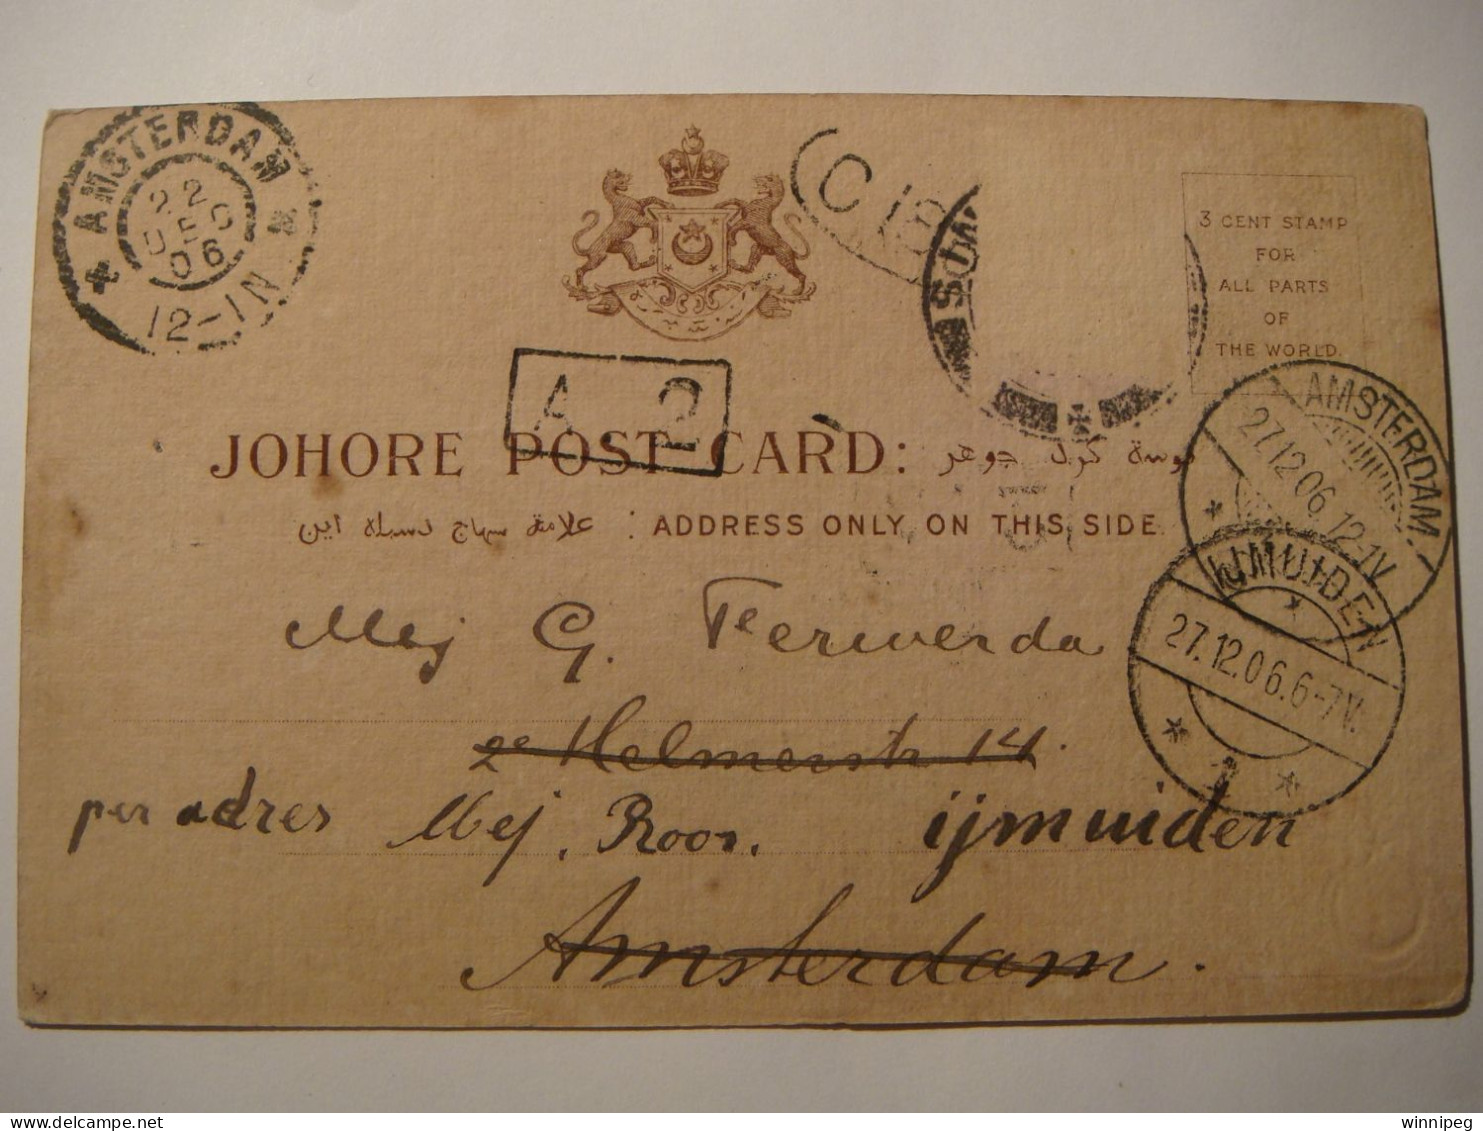 AMSTERDAM
22
DEC
06
12-1N
3 CENT STAMP
FOR
ALL PARTS
OF
THE WORLD.
A 2
JOHORE POST CARD:
علامة : ADDRESS ONLY ON THIS SIDE
AMSTERDAM
27.12.06.12-1V
IJMUIDEN
27.12.06.6-7V.
Mej G. Feerwerda
2e Helmerstr 14.
per adres Mej. Roos. ijmuiden
Amsterdam.
winnipeg